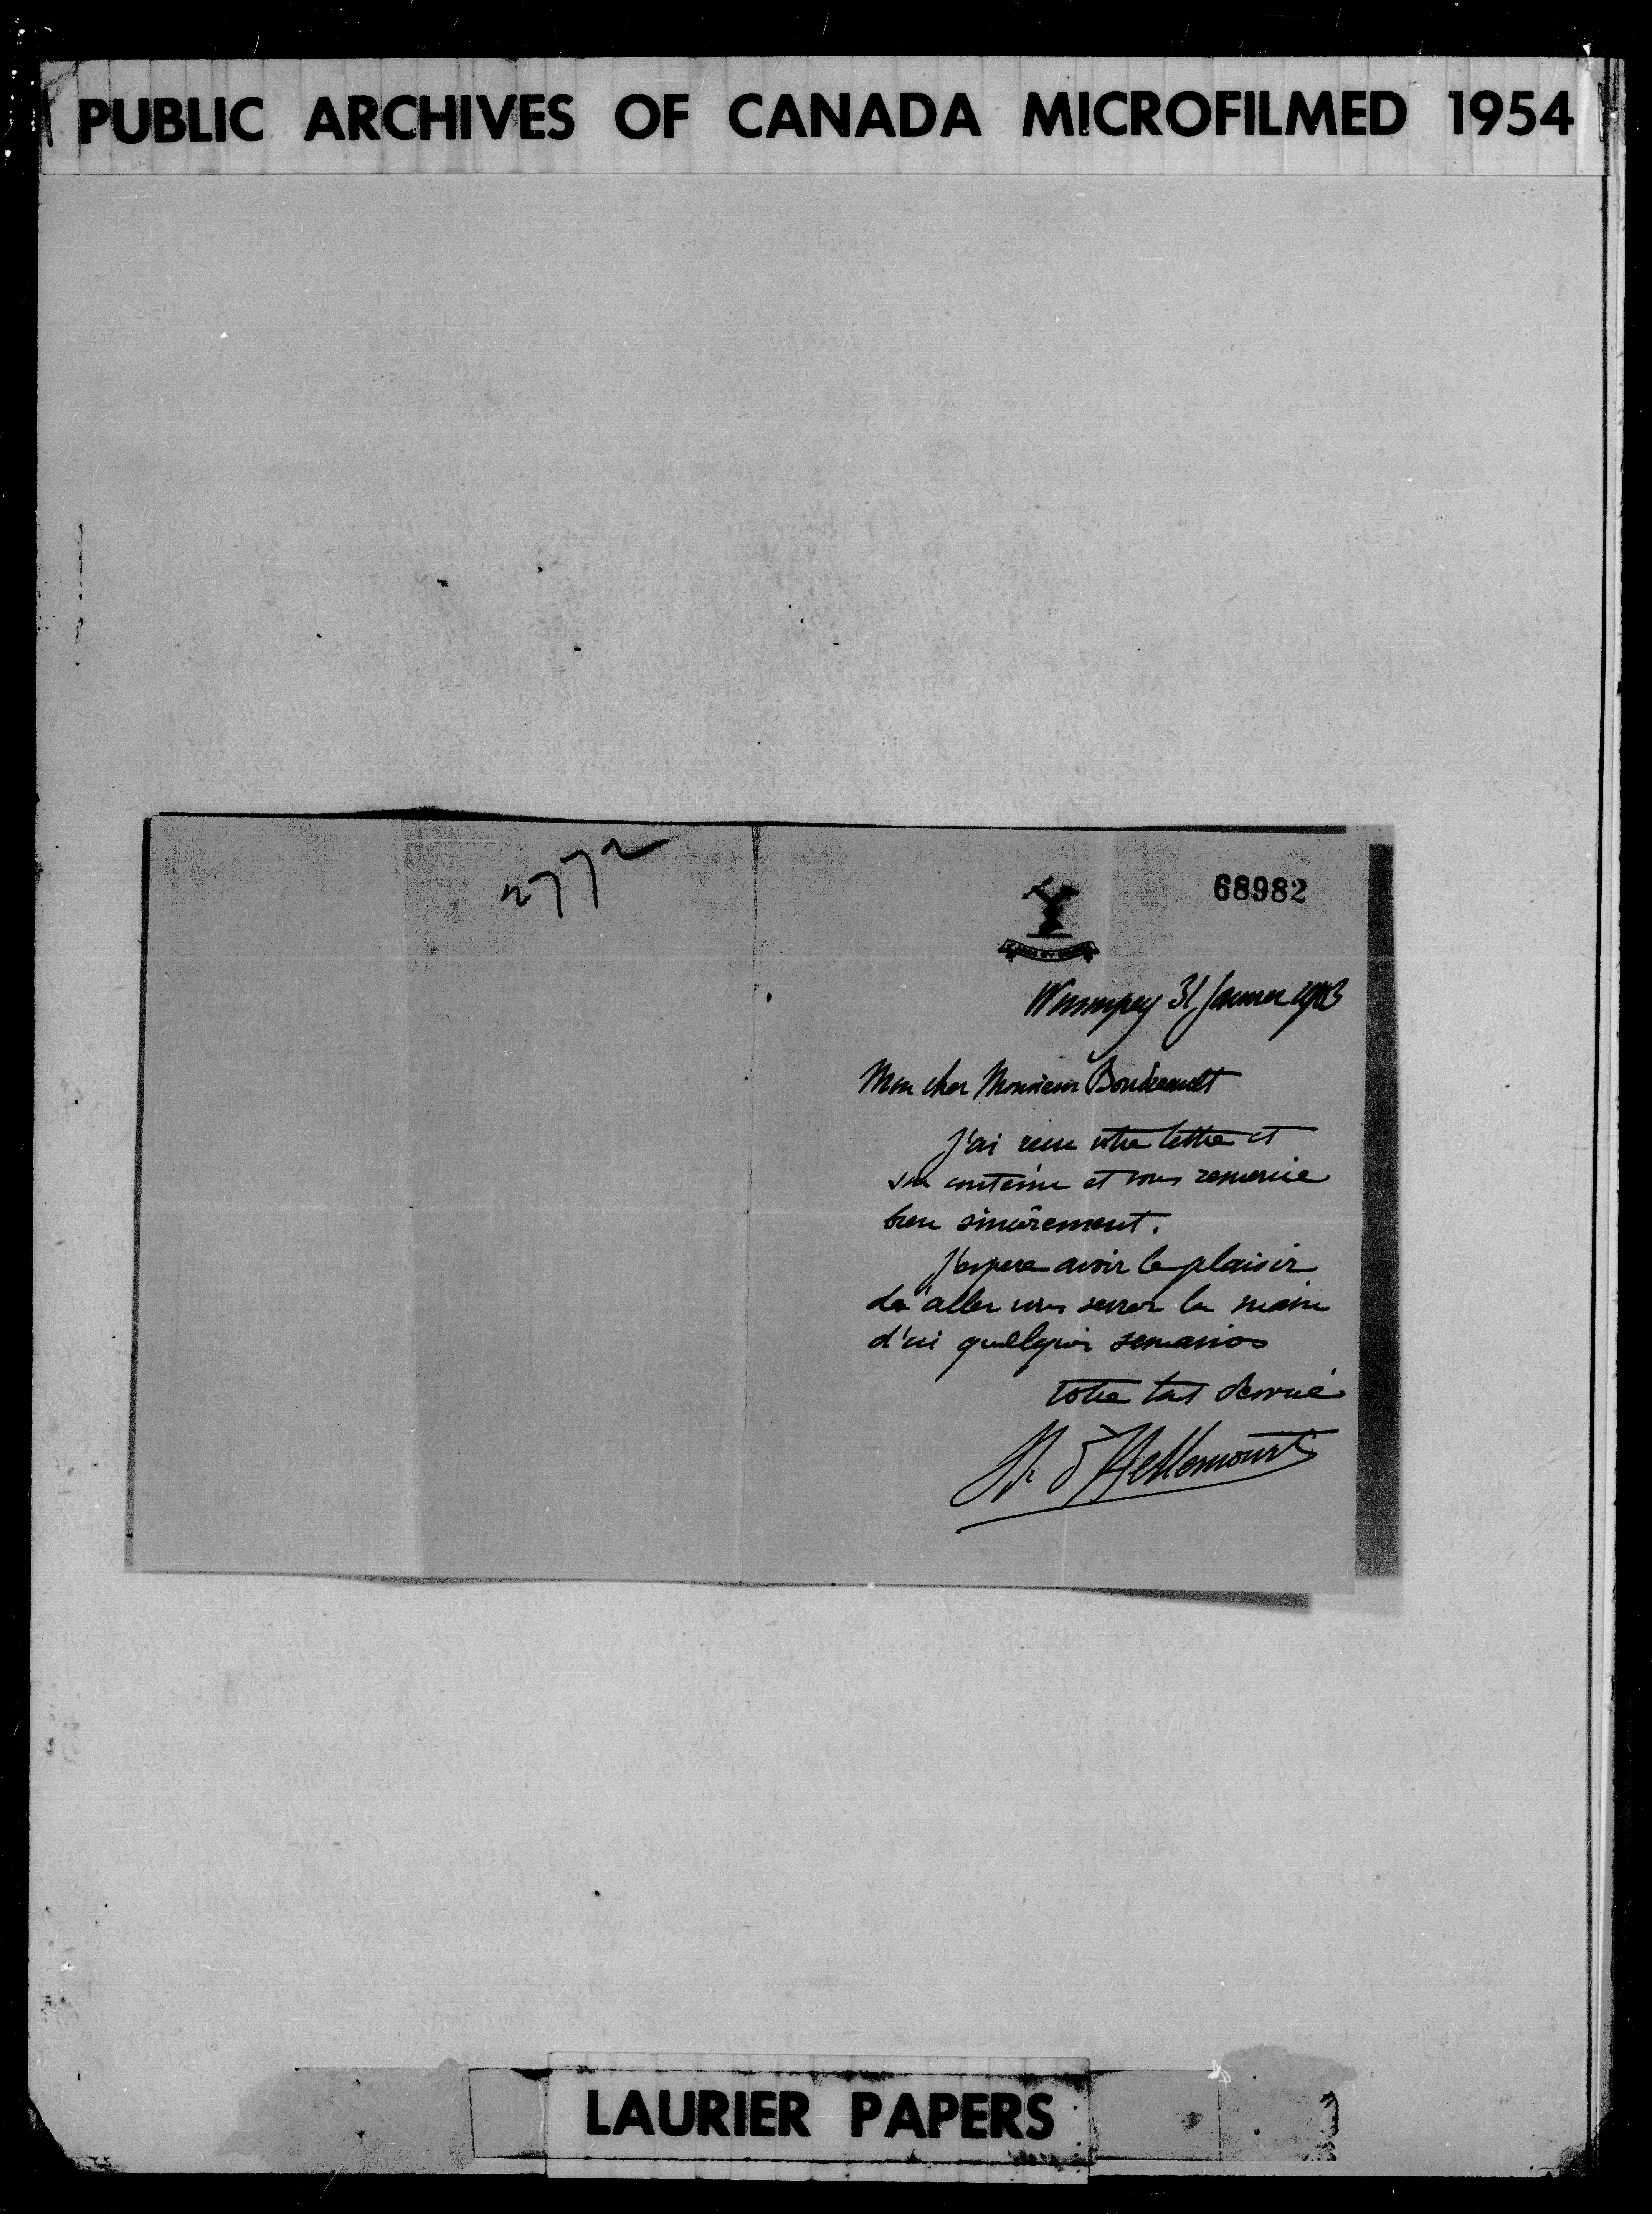 PUBLIC ARCHIVES OF CANADA MICROFILMED 1954
2772
68982
Winnipeg 31 Janvier 1903
Mon cher Monsieur Boudreault
J'ai recu votre lettre et
son contenu et vous remercie
bien sincèrement.
J'espere avoir le plaisir
de aller vous serrer la main
d'ici quelques semaines
Votre tout devoué
d'Hellencourt
LAURIER PAPERS